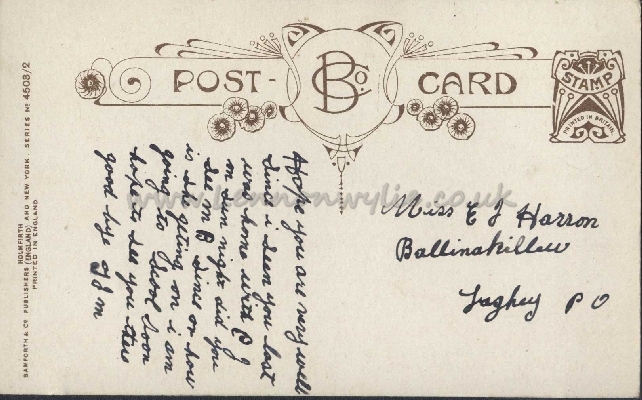 POST- B Co. CARD
STAMP
PRINTED IN BRITAIN
HOLMFIRTH
BAMFORTH & Co PUBLISHERS (ENGLAND) AND NEW YORK SERIES No 4508/2
PRINTED IN ENGLAND
www.lennonwylie.co.uk
Hope you are very well
since i seen you last
was home with B J
on sun night did you
see m B since or how
is she geting on i am
going to soon
hope to see you there
good bye J m
Miss E J Harron
Ballinakillew
Laghey P O